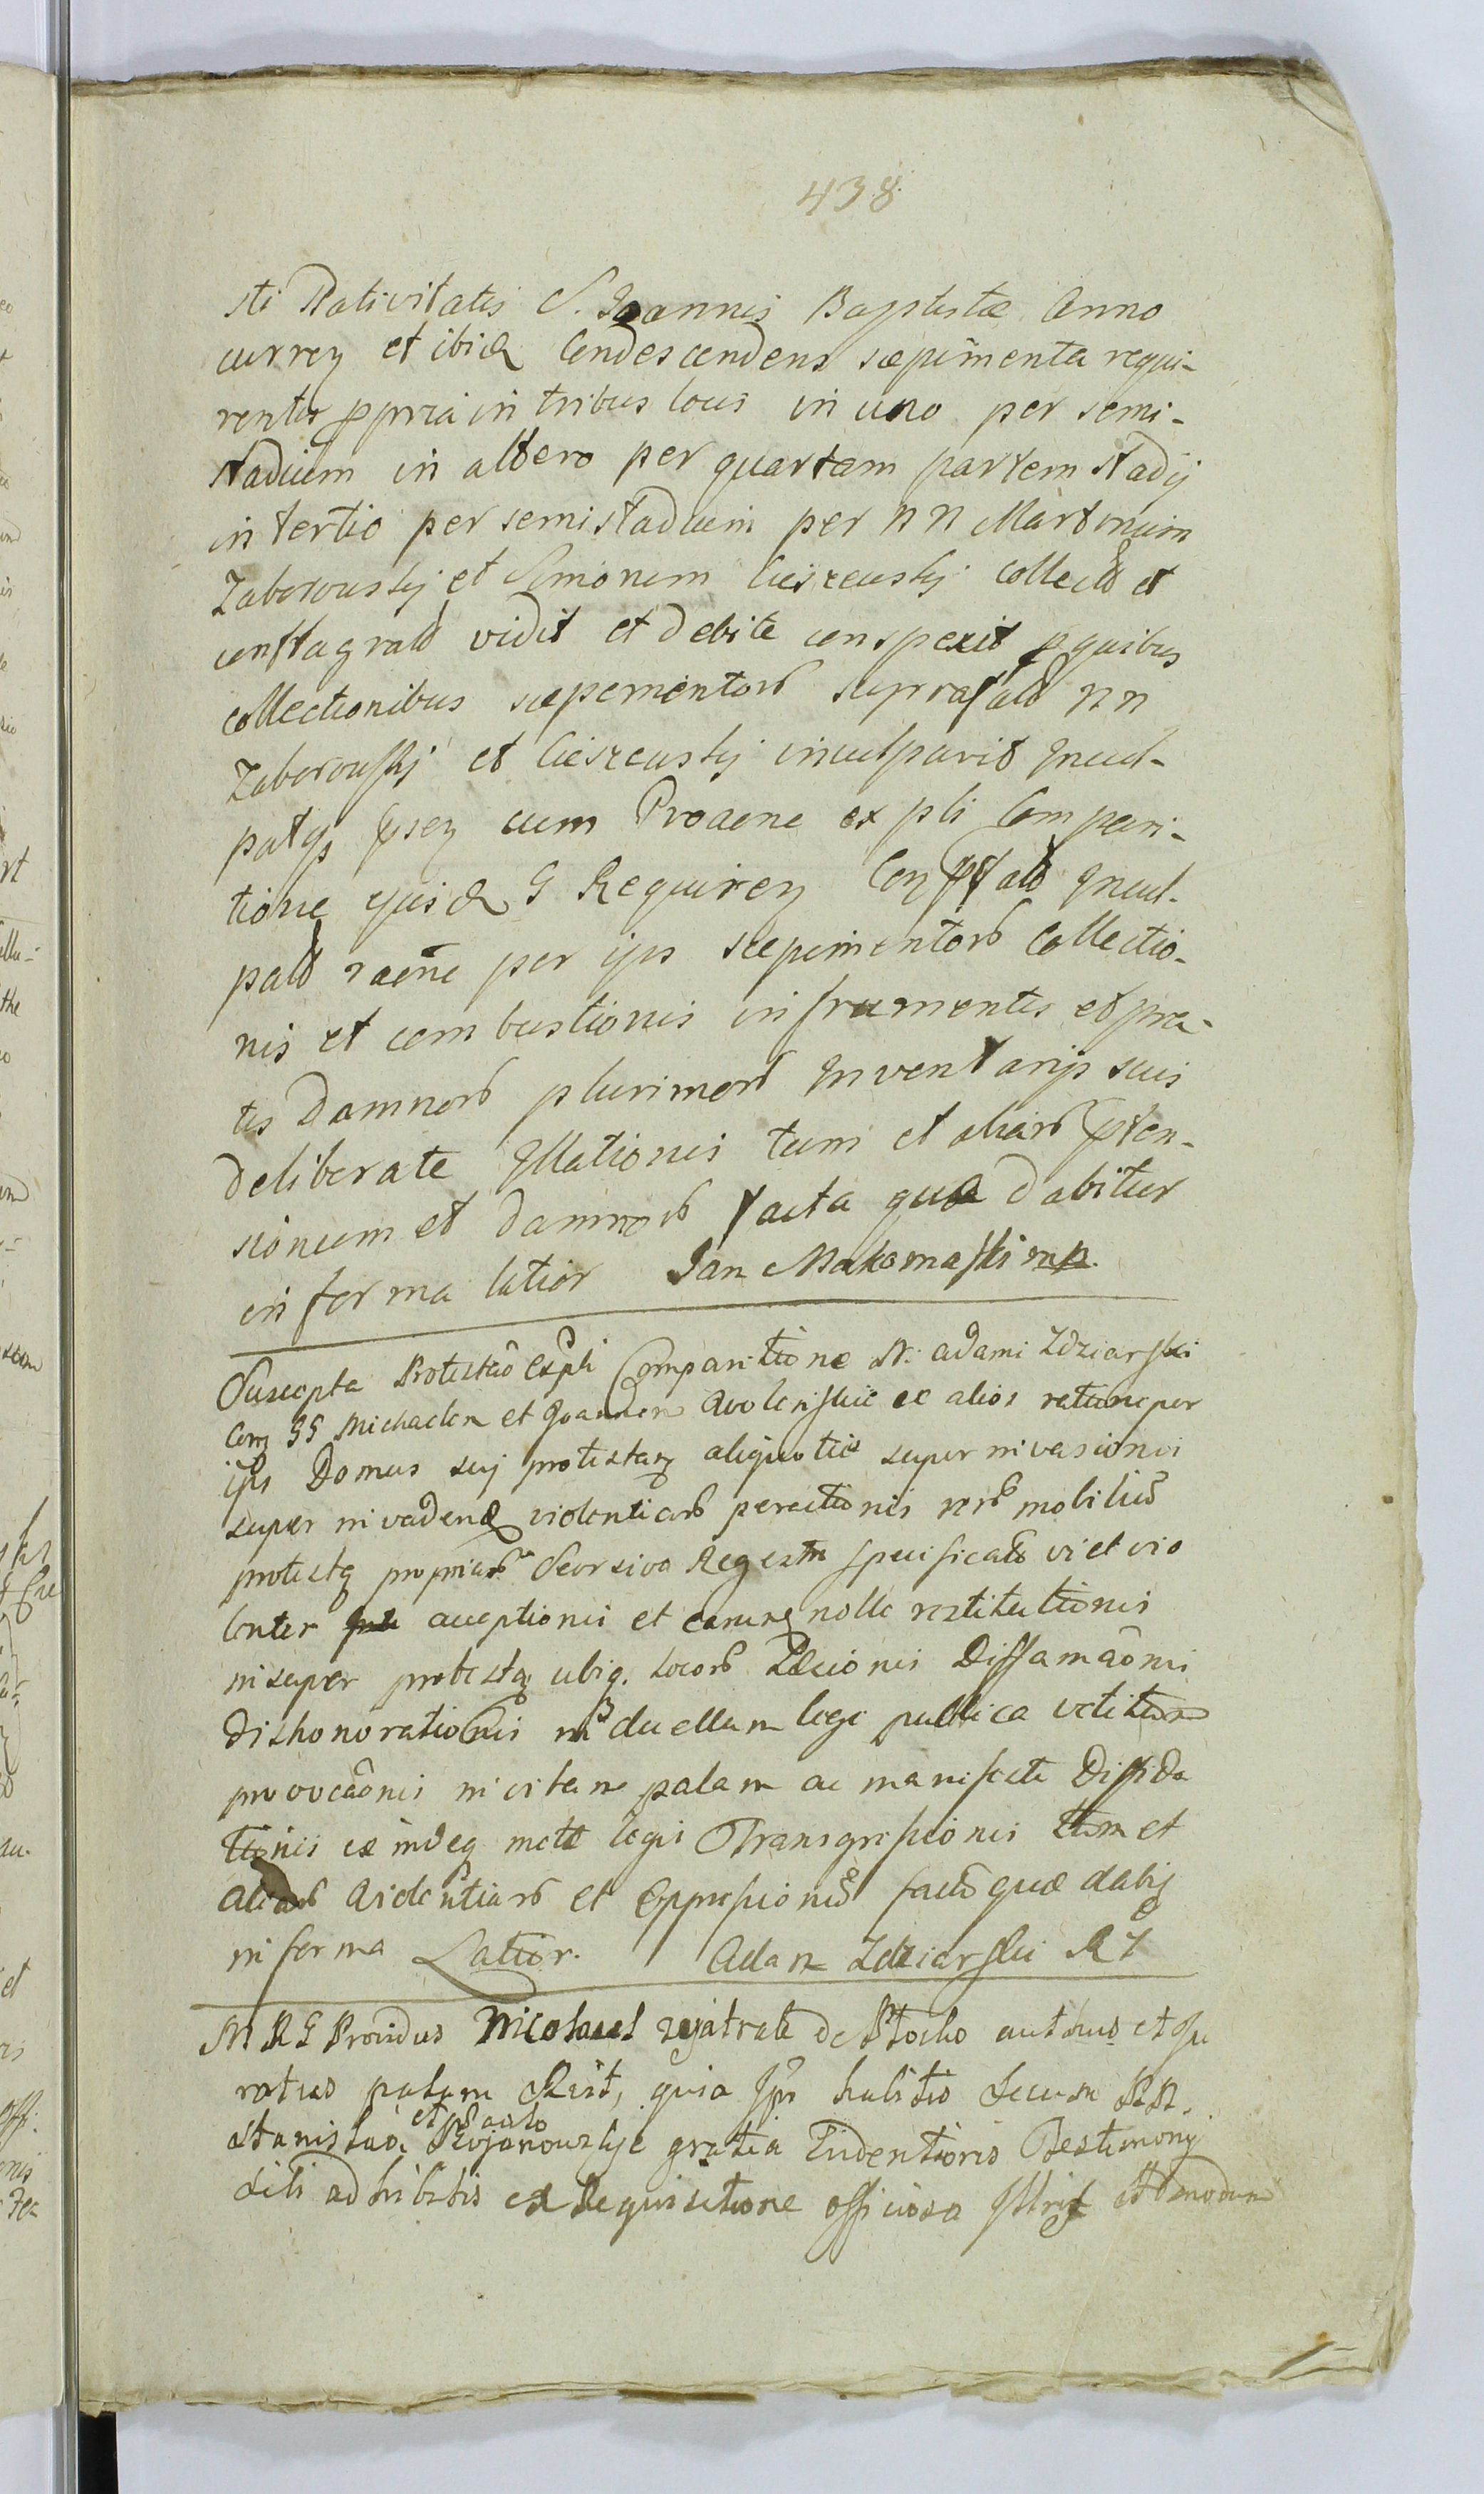 438
sti Nativitatis S. Joannis Baptistæ Anno
curren et ibid Condescendens sæpimenta requi-
rentis ppria in tribus locis in uno per semi-
stadium in altero per quartam partem stadij
in tertio per semistadium per NN Martinum
Zaborouskj et Simonem Cieszeuskj collecta et
conflagrata vidit et debite conspexit p quibus
collectionibus sæpementor suprafat NN
Zaborouskj et Cieszeuskj inculpavit Incul-
patq cum Proaone ex pti Compari-
tione ejusd G Requiren Con Incul-
pat raone per ips sæpimentor Collectio-
nis et combustionis in frumentis et pra-
tis Damnor plurimor Inventarijs suis
deliberate Illationis tum et aliar pten-
sionum et Damnor facta quæ dabitur
in forma latior Jan Makomaski mp.
Suscepta Protestao Ex pti Comparitione N. Adami Zdziarski
Con GG Michaelem et Joannem Wolenskie ac alios ratione per
ips Domus suj protestan aliquoties super invasionis
super invadend violentiar peractionis rer mobiliu
protestq propriar Seorsivo Regestro specificat vi et vio
lenter acceptionis et earumq nolle restitutionis
insuper protestq ubiq. locor Diffamaonis
Dishonorationis in duellum lege publica vetitum
provocaonis in vitam palam ac manifeste Diffida
tionis ex indeq legis Transgressionis tum et
aliar Violentiar et Oppressioni facta quæ dabit
in forma Latior. Adam Zdziarski RZ
M RG Providus Nicolaus de Plocko autticus et Ju
ratus palam Recit, quia Ips habitis Secum NN.
et Paulo
Stanislao Rojanouskje gratia Evidentioris Testimonij
sibi adhibitis ex Requisitione officiosa Illris